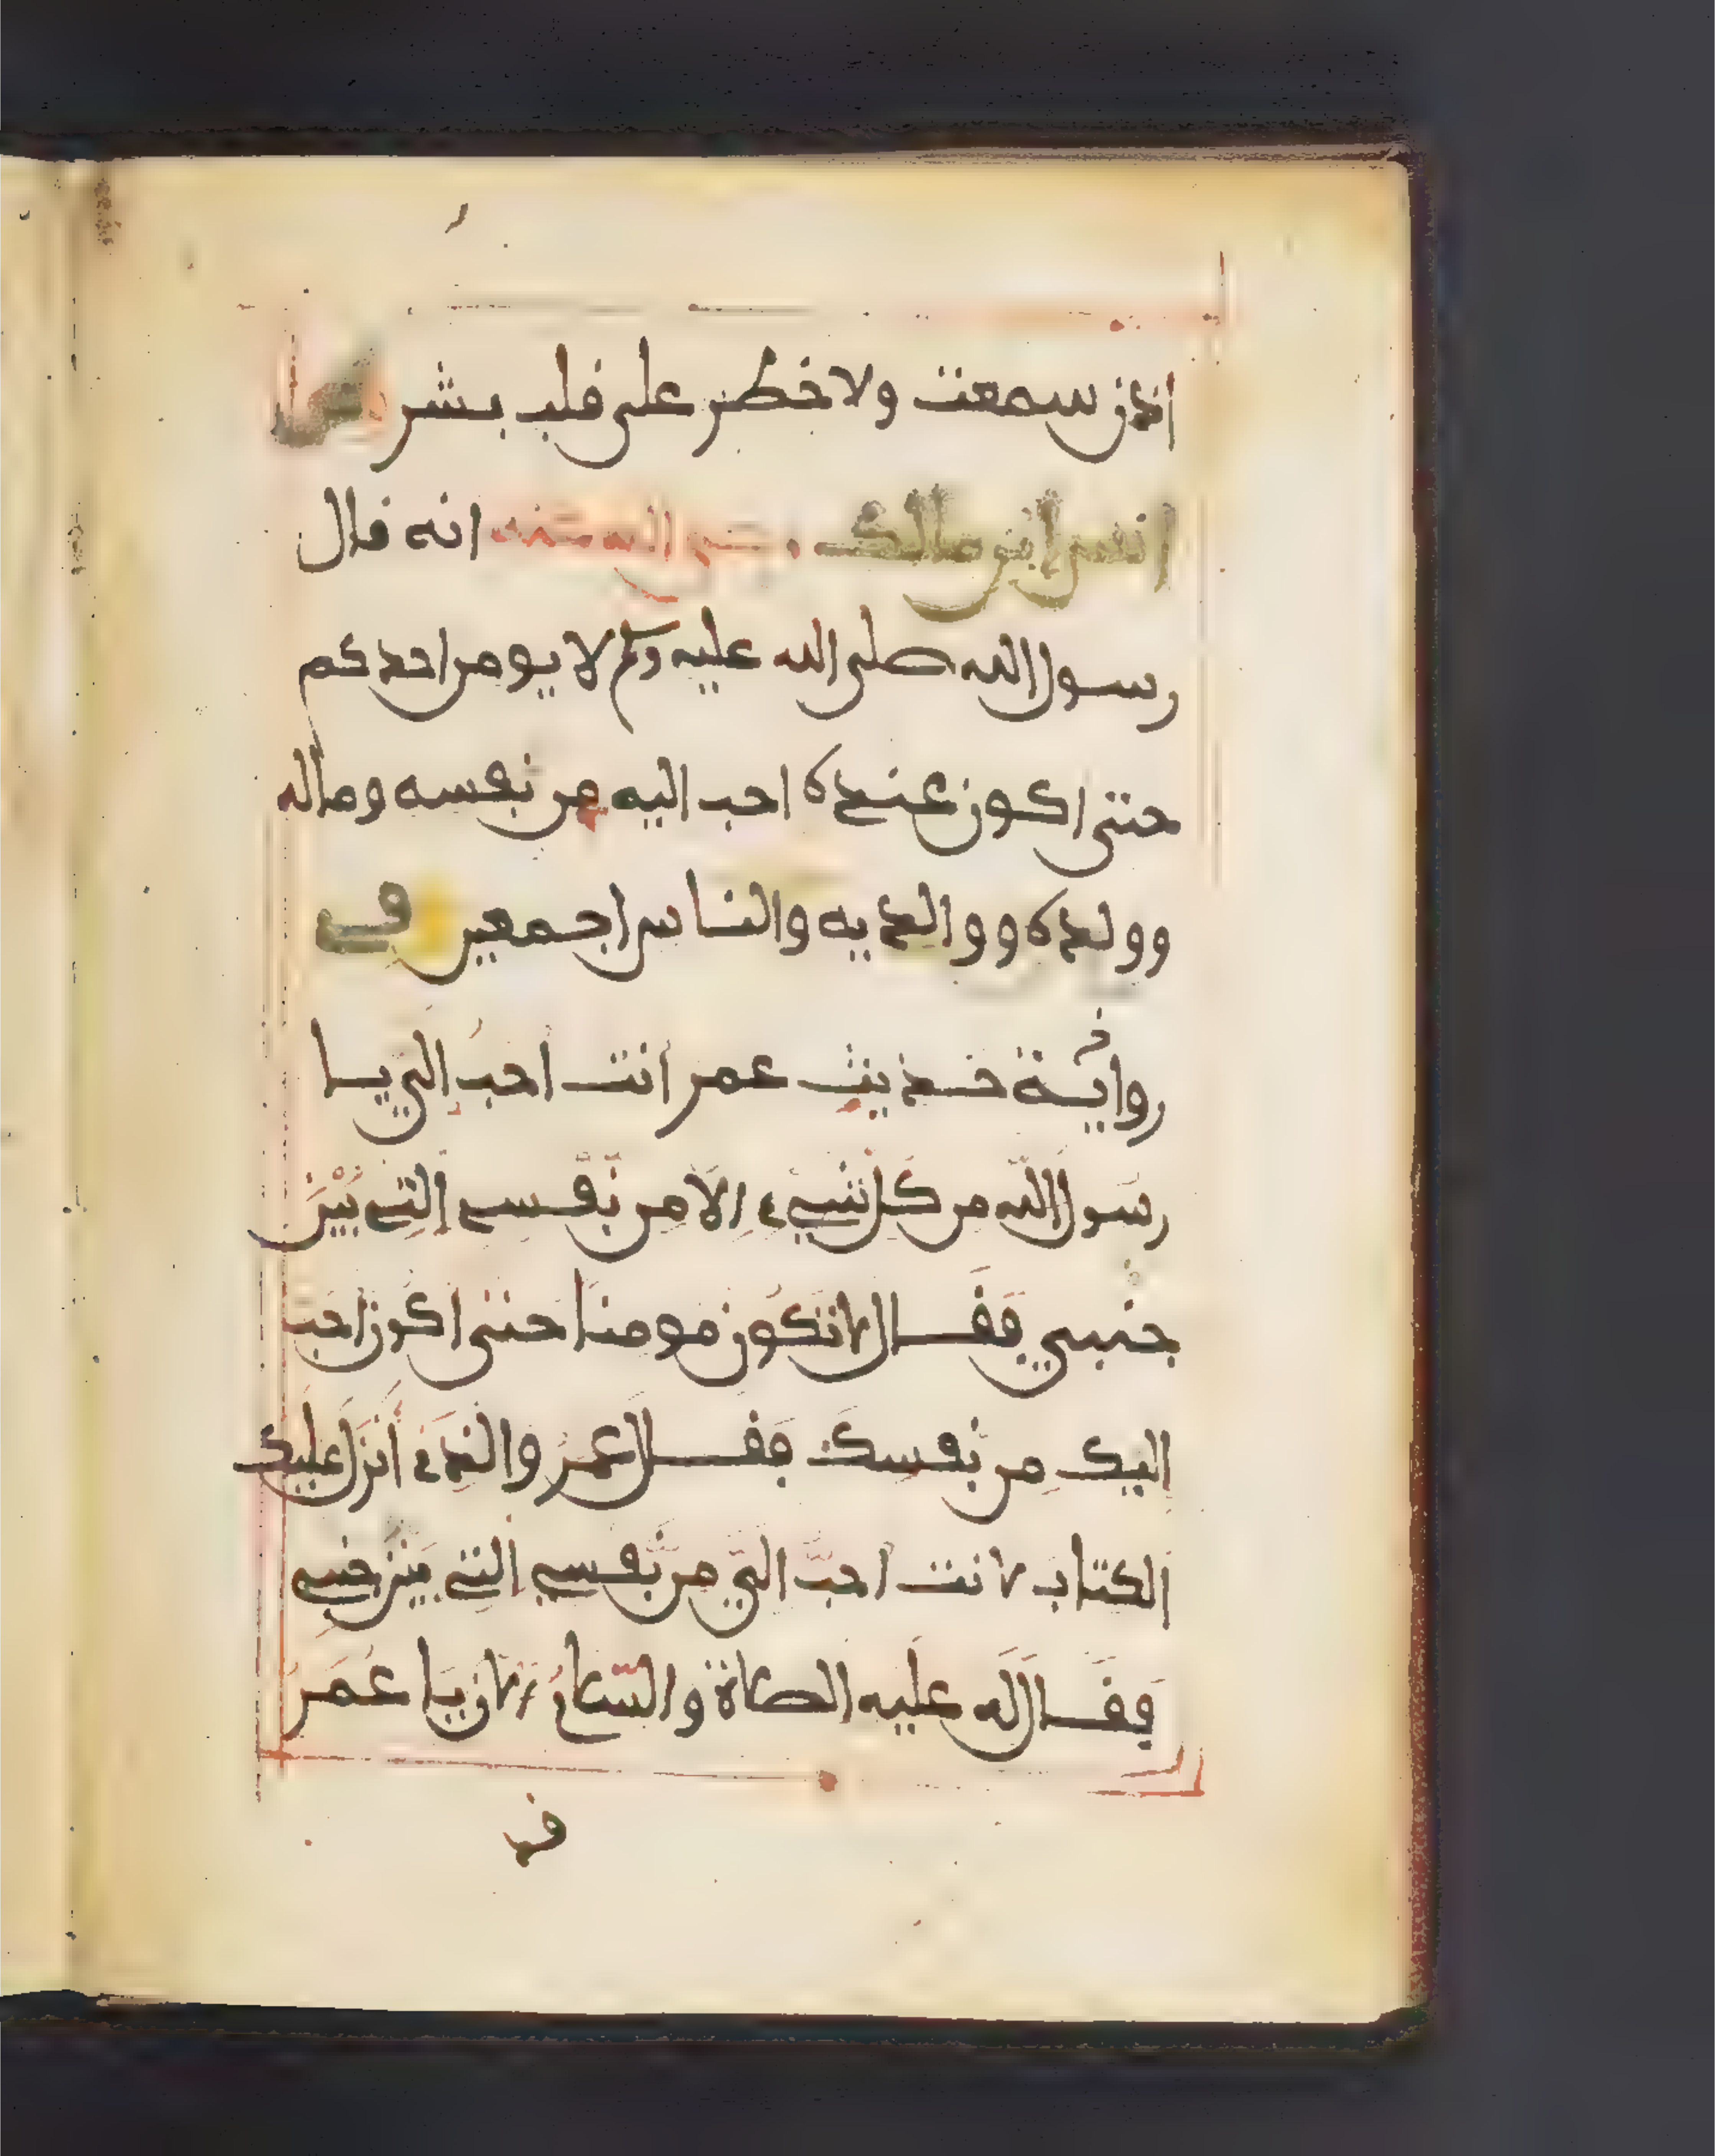 اذن سمعت ولا خطر على قلب بشر
انس ابن مالك رضي الله عنه انه قال
رسول الله صلى الله عليه وسلم لا يومن احدكم
حتى اكون عنده احب اليه من نفسه وماله
وولده ووالديه والناس اجمعين وفي
رواية حديث عمر انت احب الي يا
رسول الله من كل شيء الا من نفسي التي بين
جنبي فقال لا تكون مومنا حتى اكون احب
اليك من نفسك فقال عمر والذي أنزل عليك
الكتاب لانت احب الي من نفسي التي بين جنبي
فقال له عليه الصلاة والسلام الان يا عمر